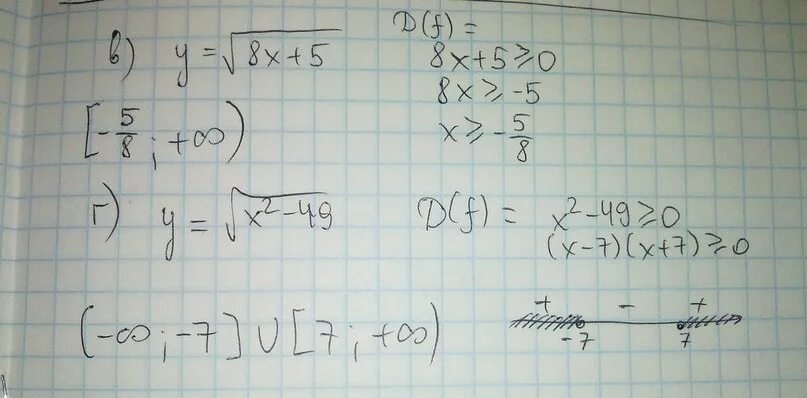 в) y = √(8x+5)
D(f) =
8x+5 ⩾ 0
8x ⩾ -5
x ⩾ -5/8
[-5/8; +∞)
г) y = √(x²-49)
D(f) = x²-49 ⩾ 0
(x-7)(x+7) ⩾ 0
+ - +
-7 7
(-∞; -7] ∪ [7; +∞)